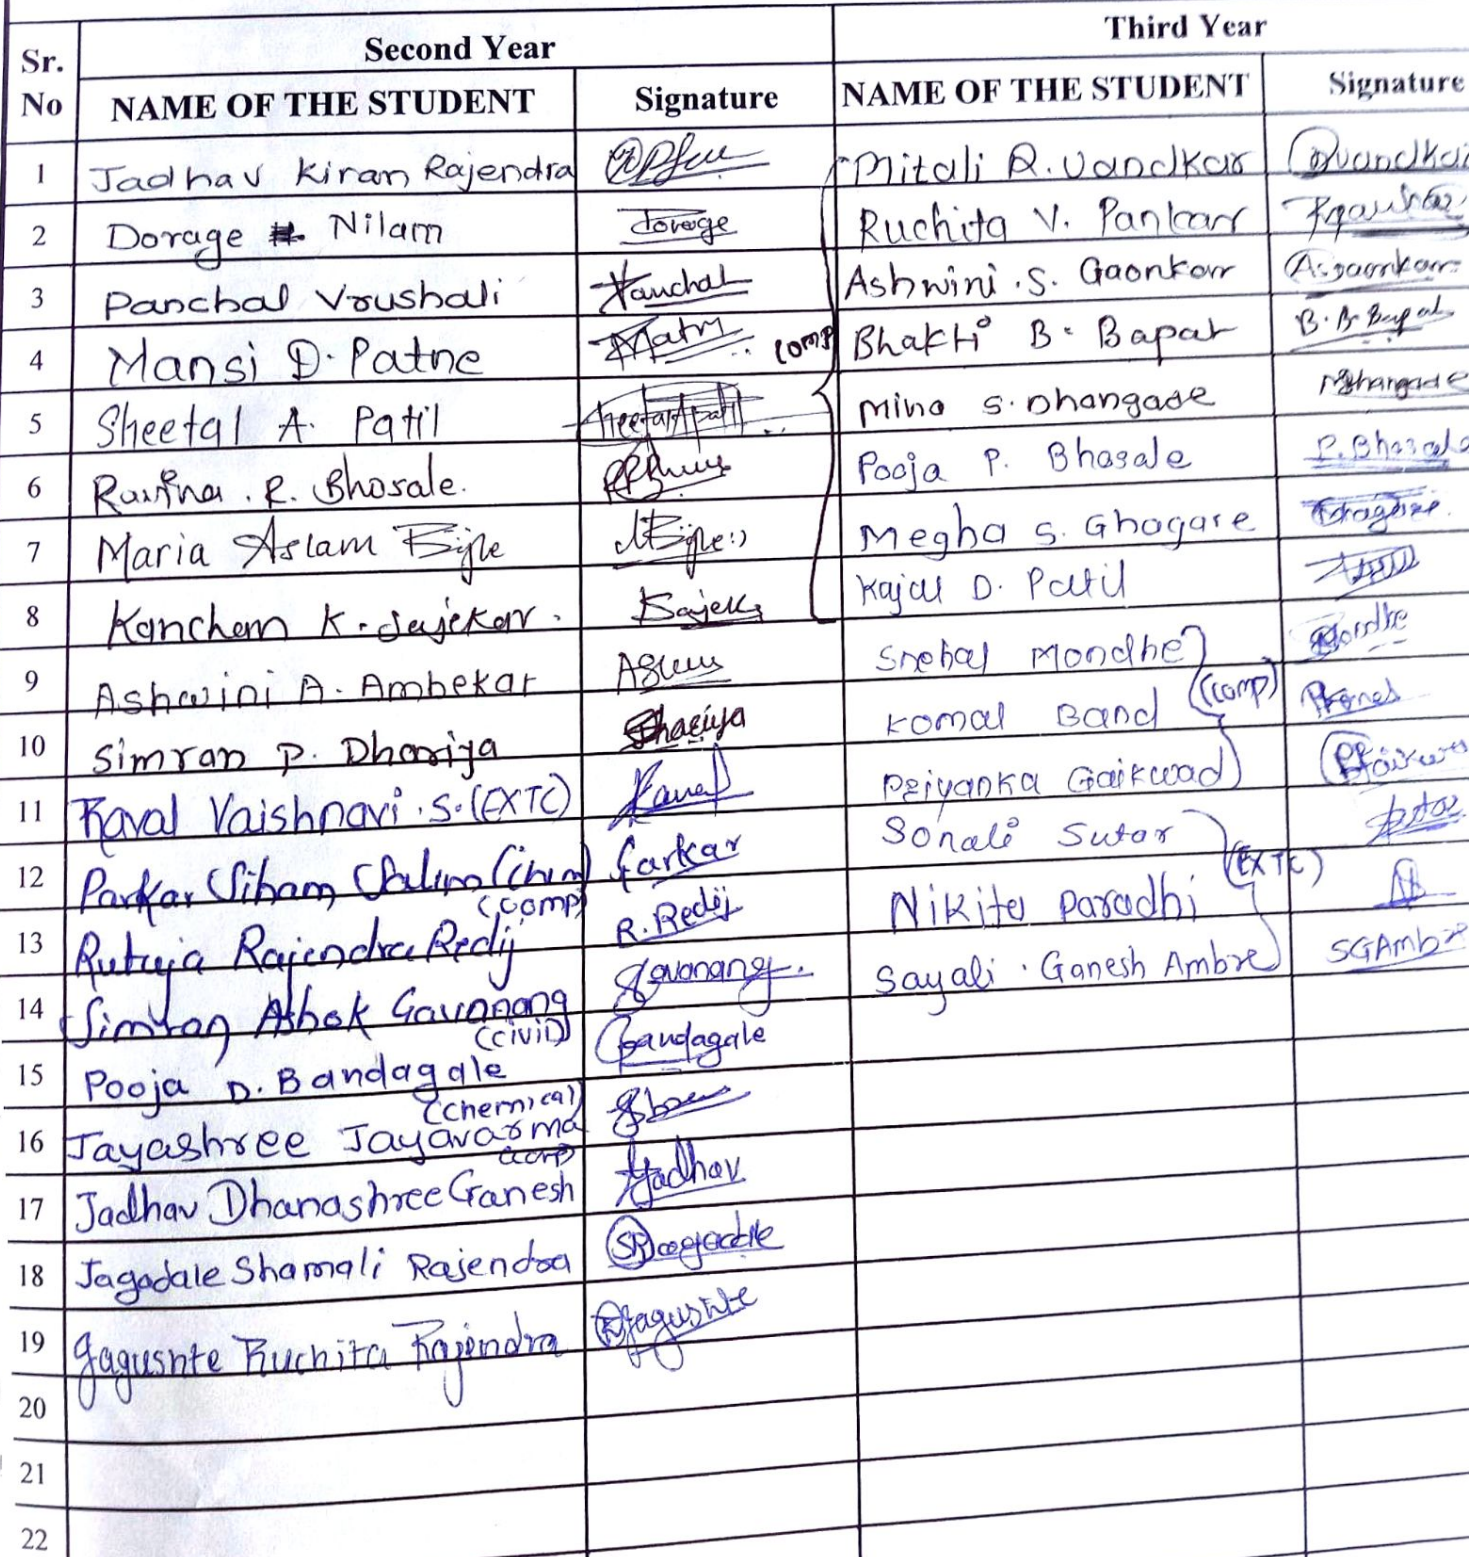 Second Year Third Year
Sr. No NAME OF THE STUDENT Signature NAME OF THE STUDENT Signature
1 Jadhav Kiran Rajendra Mitali R. Vandkar
2 Dorage Nilam Dorage Ruchita V. Pankar
3 Panchal Vrushali Panchal Ashwini . S. Gaonkar A.S.gaonkar
4 Mansi D. Patne comp Bhakti B. Bapat B. B. Bapat
5 Sheetal A. Patil SheetalApatil Mina S. Dhangade
6 Ravina . R. Bhosale. Pooja P. Bhosale P. Bhosale
7 Maria Aslam Bijle MBijle:) Megha S. Ghagare
8 Kanchan K. Jajekar. Kajal D. Patil
9 Ashwini A. Ambekar Snehal Mondhe
10 Simran P. Dhariya Komal Band (comp)
11 Raval Vaishnavi . S. (EXTC) Raval Priyanka Gaikwad
12 Parkar Siham Salim (Chem) Parkar Sonali Sutar
13 Rutuja Rajendra Redij (comp) R. Redij Nikita Paradhi (EXTC)
14 Simran Ashok Gavanang Gavanang. Sayali . Ganesh Ambre SGAmbre
15 Pooja D. Bandagale (civil) Bandagale
16 Jayashree Jayavarma (chemical)
17 Jadhav Dhanashree Ganesh Jadhav
18 Jagadale Shamali Rajendra
19 Jagushte Ruchita Rajendra RJagushte
20
21
22